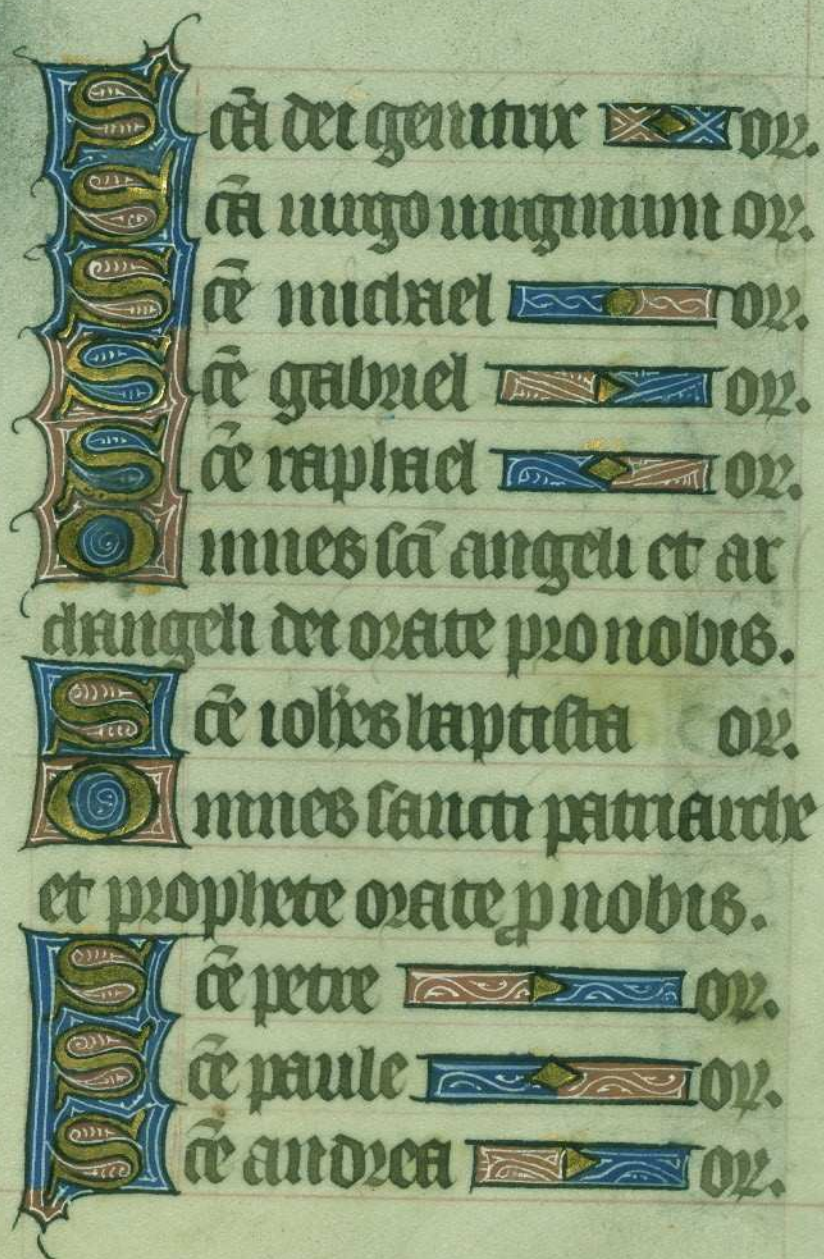 Sc̄a dei genitrix or.
Sc̄a uirgo uirginum or.
Sc̄e michael or.
Sc̄e gabriel or.
Sc̄e raphael or.
Omnes sc̄i angeli et ar
changeli dei orate pro nobis.
Sc̄e ioh̄es baptista or.
Omnes sancti patriarche
et prophete orate ꝓ nobis.
Sc̄e petre or.
Sc̄e paule or.
Sc̄e andrea or.